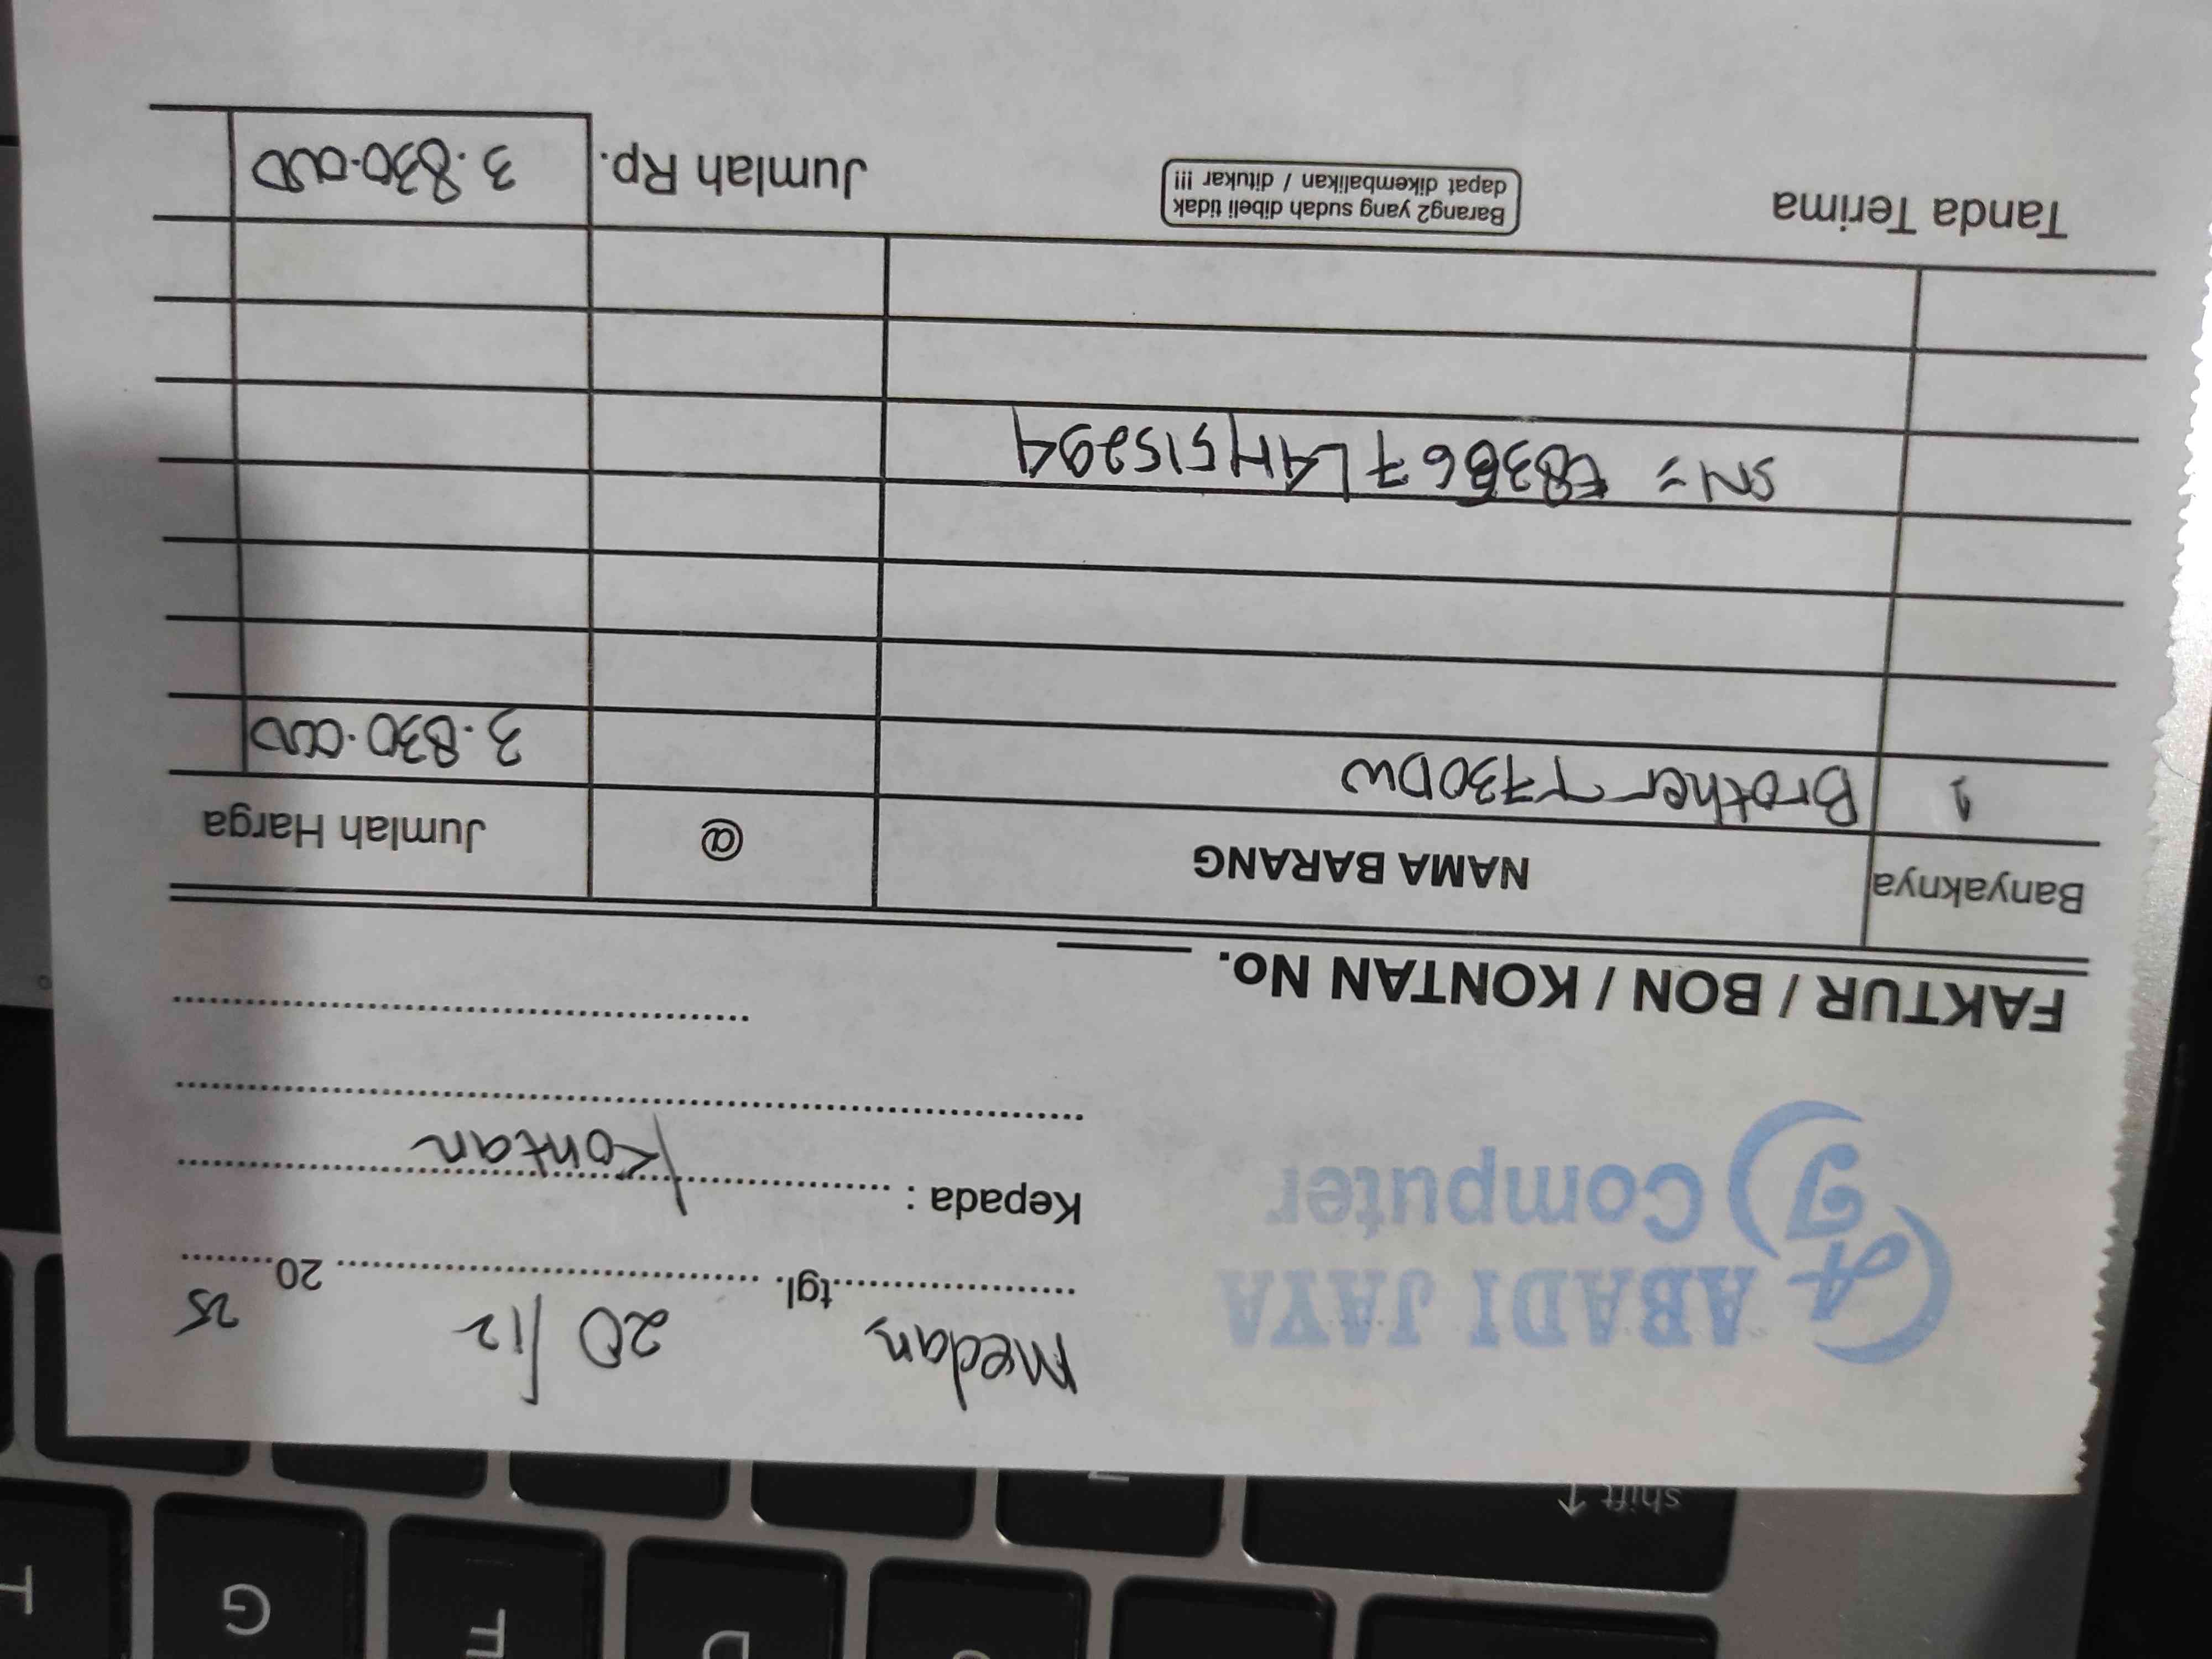 ABADI JAYA
Computer
AJ
Medan, tgl. 20/12 20 25
Kepada : Kontan
FAKTUR / BON / KONTAN No.
Banyaknya NAMA BARANG @ Jumlah Harga
1 Brother T730DW 3.830.000
SN = E83B67L4H515294
Tanda Terima
Barang2 yang sudah dibeli tidak
dapat dikembalikan / ditukar !!!
Jumlah Rp. 3.830.000
shift ↑
D F G